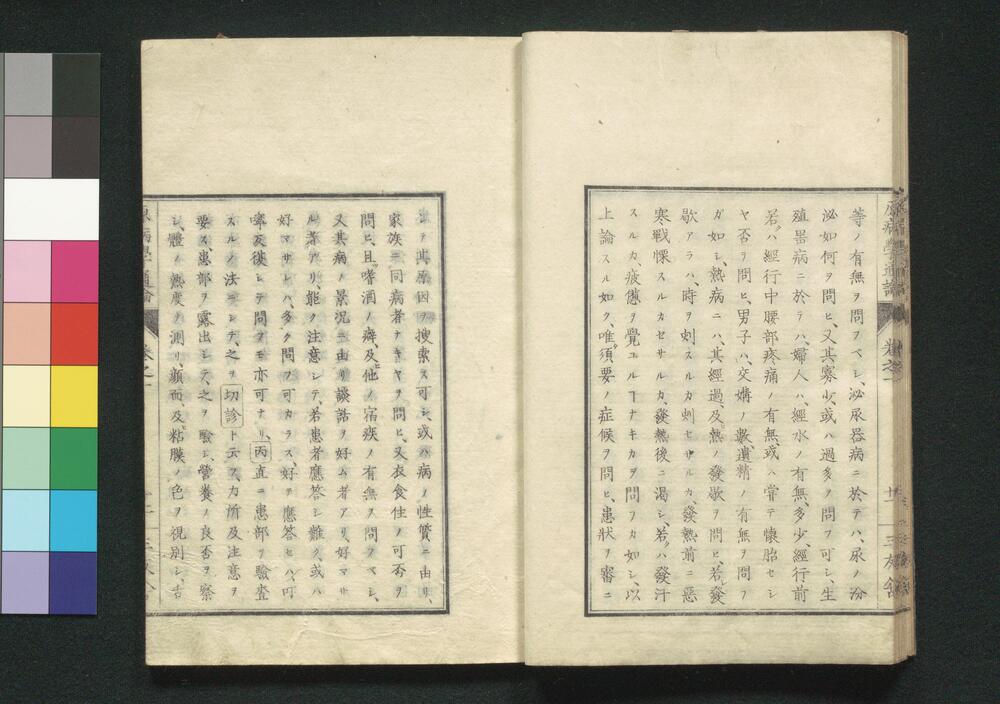 等ノ有無ヲ問フベシ、泌尿器病ニ於テハ、尿ノ分
泌如何ヲ問ヒ、又其寡少、或ハ過多ヲ問フ可シ、生
殖器病ニ於テハ、婦人ハ、經水ノ有無、多少、經行前
若クハ經行中腰部疼痛ノ有無、或ハ嘗テ懷胎セシ
ヤ否ヲ問ヒ、男子ハ、交媾ノ數、遺精ノ有無ヲ問フ
ガ如シ、熱病ニハ、其經過及熱ノ發歇ヲ問ヒ、若發
歇アラハ、時ヲ刻スルカ刻セサルカ、發熱前ニ惡
寒戰慄スルカセサルカ、發熱後ニ渴シ、若クハ發汗
スルカ、疲憊ヲ覺ユルヿナキカヲ問フカ如シ、以
上論スル如ク、唯須要ノ症候ヲ問ヒ、患狀ヲ審ニ
原病學通論 卷之一 廿一 三友舍
テ其原因ヲ搜索ス可シ、或ハ病ノ性質ニ由リ、
家族ニ同病者ナキヤヲ問ヒ、又衣食住ノ可否ヲ
問ヒ、且ツ嗜酒ノ癖、及ヒ他ノ宿疾ノ有無ヲ問フベシ、
又其病ノ景況ニ由リ談話ヲ好ム者アリ、好マサ
ル者アリ、能ク注意シテ、若患者應答シ難ク、或ハ
好マサレハ、多ク問フ可カラス、好テ應答セハ、叮
嚀反復シテ問フモ亦可ナリ、丙直ニ患部ヲ驗査
スルノ法ニシテ、之ヲ切診ト云フ、力所及注意ヲ
要ス、患部ヲ露出シテ、之ヲ驗シ、營養ノ良否ヲ察
シ、體ノ熱度ヲ測リ、顏面及粘膜ノ色ヲ視別シ、舌
原病學通論 卷之一